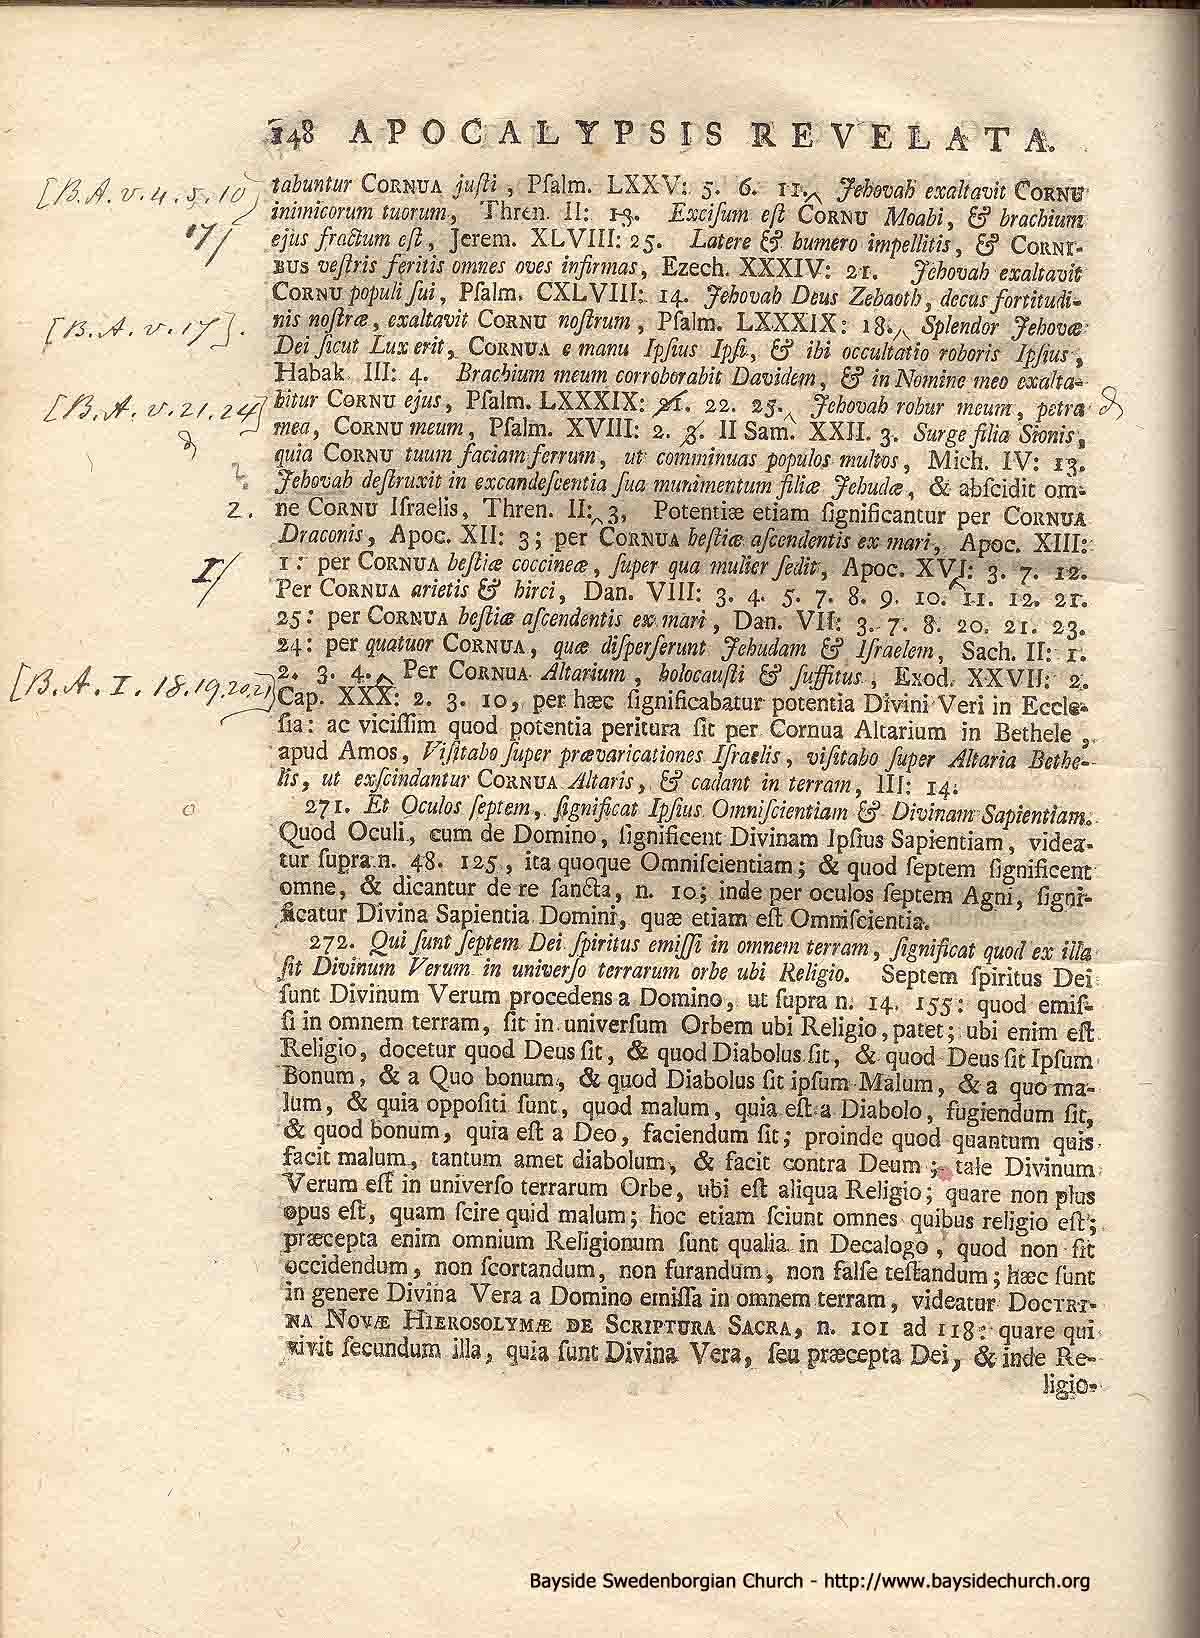 148 APOCALYPSIS REVELATA.
[B.A. v. 4. 5. 10]
17/
[B.A. v. 17].
[B.A. v. 21. 24]
2.
1/
[B.A. I. 18. 19. 20. 21]
tabuntur CORNUA juſti, Pſalm. LXXV: 5. 6. 11. Jehovah exaltavit CORNU
inimicorum tuorum, Thren. II: 13. Exciſum eſt CORNU Moabi, & brachium
ejus fractum eſt, Jerem. XLVIII: 25. Latere & humero impellitis, & CORNI-
BUS veſtris feritis omnes oves infirmas, Ezech. XXXIV: 21. Jehovah exaltavit
CORNU populi ſui, Pſalm. CXLVIII: 14. Jehovah Deus Zebaoth, decus fortitudi-
nis noſtræ, exaltavit CORNU noſtrum, Pſalm. LXXXIX: 18. Splendor Jehovæ
Dei ſicut Lux erit, CORNUA e manu Ipſius Ipſi, & ibi occultatio roboris Ipſius,
Habak III: 4. Brachium meum corroborabit Davidem, & in Nomine meo exalta-
bitur CORNU ejus, Pſalm. LXXXIX: 21. 22. 25. Jehovah robur meum, petra
mea, CORNU meum, Pſalm. XVIII: 2. 3. II Sam. XXII. 3. Surge filia Sionis,
quia CORNU tuum faciam ferrum, ut comminuas populos multos, Mich. IV: 13.
Jehovah deſtruxit in excandeſcentia ſua munimentum filiæ Jehudæ, & abſcidit om-
ne CORNU Iſraelis, Thren. II: 3, Potentiæ etiam ſignificantur per CORNUA
Draconis, Apoc. XII: 3; per CORNUA beſtiæ aſcendentis ex mari, Apoc. XIII:
1: per CORNUA beſtiæ coccineæ, ſuper qua mulier ſedit, Apoc. XVI: 3. 7. 12.
Per CORNUA arietis & hirci, Dan. VIII: 3. 4. 5. 7. 8. 9. 10. 11. 12. 21.
25: per CORNUA beſtiæ aſcendentis ex mari, Dan. VII: 3. 7. 8. 20. 21. 23.
24: per quatuor CORNUA, quæ diſperſerunt Jehudam & Iſraelem, Sach. II: 1.
2. 3. 4. Per CORNUA Altarium, holocauſti & ſuffitus, Exod. XXVII: 2.
Cap. XXX: 2. 3. 10, per hæc ſignificabatur potentia Divini Veri in Eccle-
ſia: ac viciſſim quod potentia peritura ſit per Cornua Altarium in Bethele,
apud Amos, Viſitabo ſuper prævaricationes Iſraelis, viſitabo ſuper Altaria Bethe-
lis, ut exſcindantur CORNUA Altaris, & cadant in terram, III: 14.
271. Et Oculos ſeptem, ſignificat Ipſius Omniſcientiam & Divinam Sapientiam.
Quod Oculi, cum de Domino, ſignificent Divinam Ipſius Sapientiam, videa-
tur ſupra n. 48. 125, ita quoque Omniſcientiam; & quod ſeptem ſignificent
omne, & dicantur de re ſancta, n. 10; inde per oculos ſeptem Agni, ſigni-
ficatur Divina Sapientia Domini, quæ etiam eſt Omniſcientia.
272. Qui ſunt ſeptem Dei ſpiritus emiſſi in omnem terram, ſignificat quod ex illa
ſit Divinum Verum in univerſo terrarum orbe ubi Religio. Septem ſpiritus Dei
ſunt Divinum Verum procedens a Domino, ut ſupra n. 14. 155: quod emiſ-
ſi in omnem terram, ſit in univerſum Orbem ubi Religio, patet; ubi enim eſt
Religio, docetur quod Deus ſit, & quod Diabolus ſit, & quod Deus ſit Ipſum
Bonum, & a Quo bonum, & quod Diabolus ſit ipſum Malum, & a quo ma-
lum, & quia oppoſiti ſunt, quod malum, quia eſt a Diabolo, fugiendum ſit,
& quod bonum, quia eſt a Deo, faciendum ſit; proinde quod quantum quis
facit malum, tantum amet diabolum, & facit contra Deum; tale Divinum
Verum eſt in univerſo terrarum Orbe, ubi eſt aliqua Religio; quare non plus
opus eſt, quam ſcire quid malum; hoc etiam ſciunt omnes quibus religio eſt;
præcepta enim omnium Religionum ſunt qualia in Decalogo, quod non ſit
occidendum, non ſcortandum, non furandum, non falſe teſtandum; hæc ſunt
in genere Divina Vera a Domino emiſſa in omnem terram, videatur DOCTRI-
NA NOVÆ HIEROSOLYMÆ DE SCRIPTURA SACRA, n. 101 ad 118: quare qui
vivit ſecundum illa, quia ſunt Divina Vera, ſeu præcepta Dei, & inde Re-
ligio-
Bayside Swedenborgian Church - http://www.baysidechurch.org